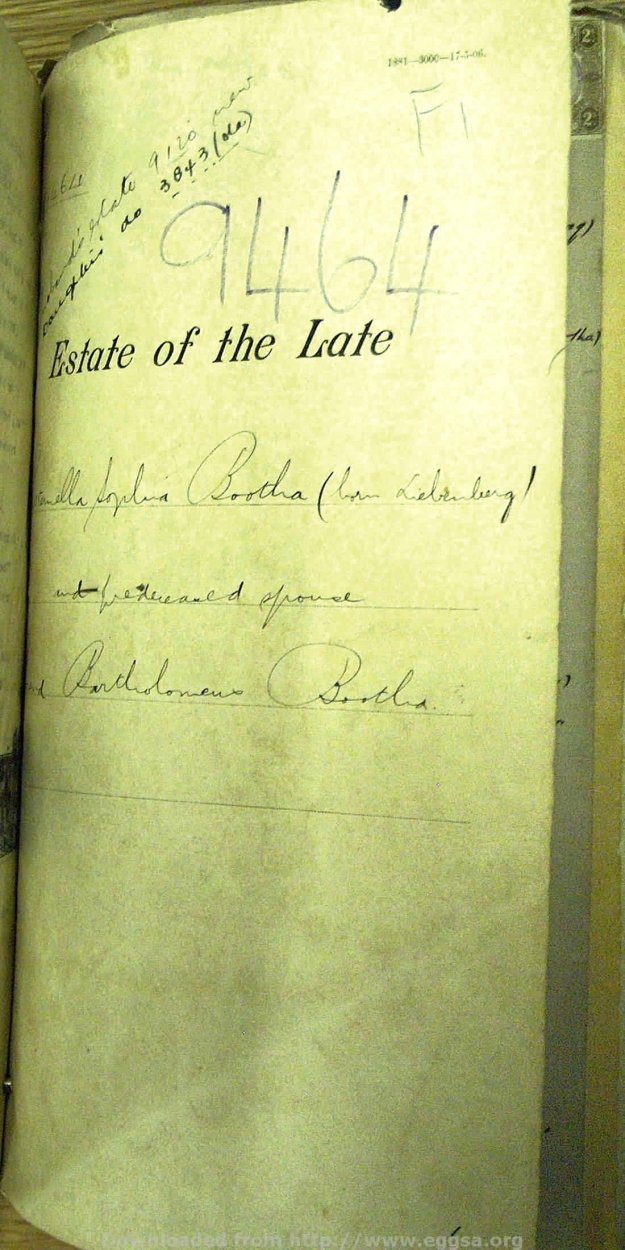 1881—3000—17-5-06.
F1
estate 9120 new
do 3843 (old)
9464
Estate of the Late
Sophia Bootha (born Liebenberg)
predeceased spouse
Bartholomeus Bootha
2
2
Downloaded from http://www.eggsa.org